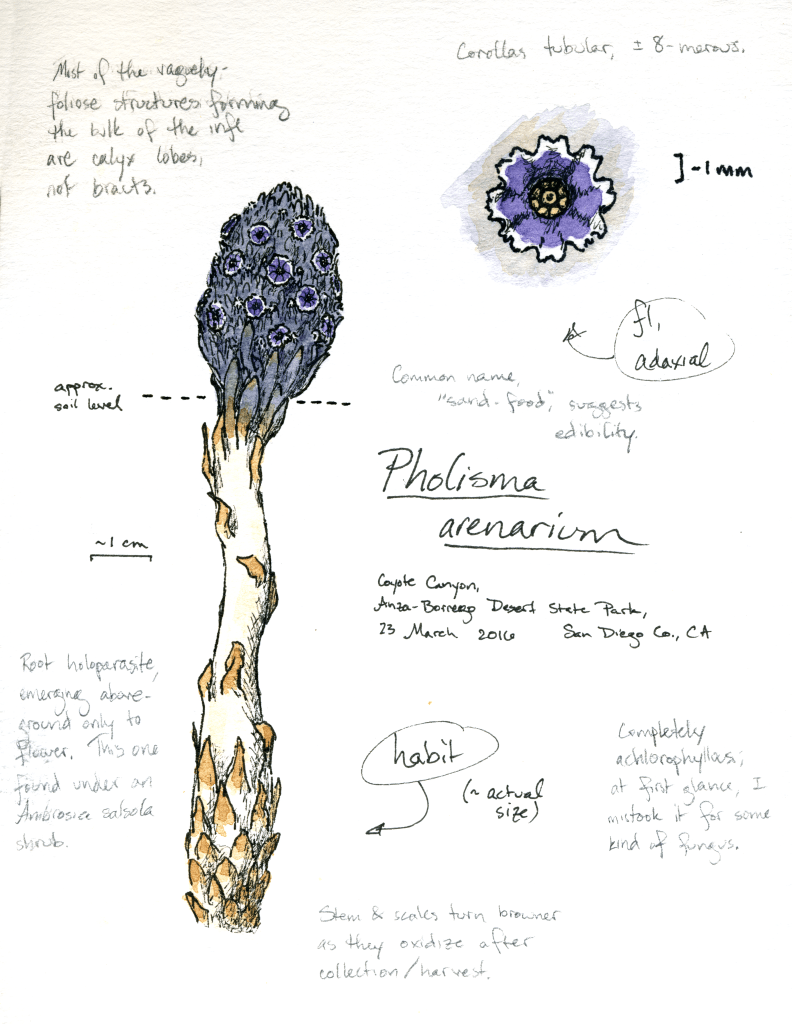 Corollas tubular, ± 8-merous.
Most of the vaguely-
foliose structures forming
the bulk of the infl
are calyx lobes,
not bracts.
]~1mm
fl,
adaxial
approx.
soil level
Common name,
"sand-food", suggests
edibility.
Pholisma
arenarium
~1 cm
Coyote Canyon,
Anza-Borrego Desert State Park,
23 March 2016 San Diego Co., CA
Root holoparasite,
emerging above-
ground only to
flower. This one
found under an
Ambrosia salsola
shrub.
habit
(~ actual
size)
Completely
achlorophyllous;
at first glance, I
mistook it for some
kind of fungus.
Stem & scales turn browner
as they oxidize after
collection/harvest.